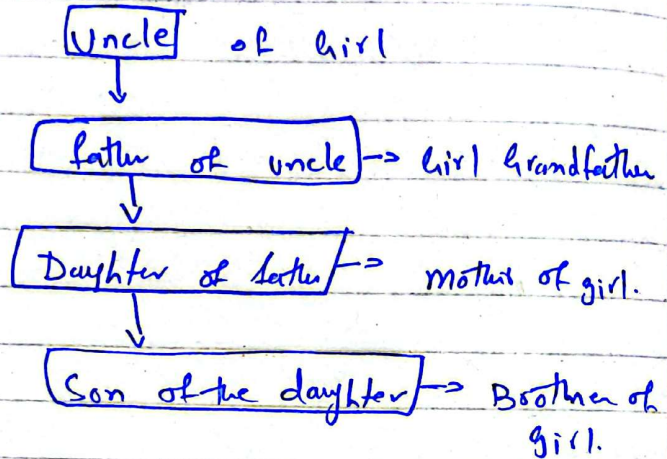 Uncle of Girl
father of uncle -> Girl Grandfather
Daughter of father -> Mother of girl.
Son of the daughter -> Brother of
girl.